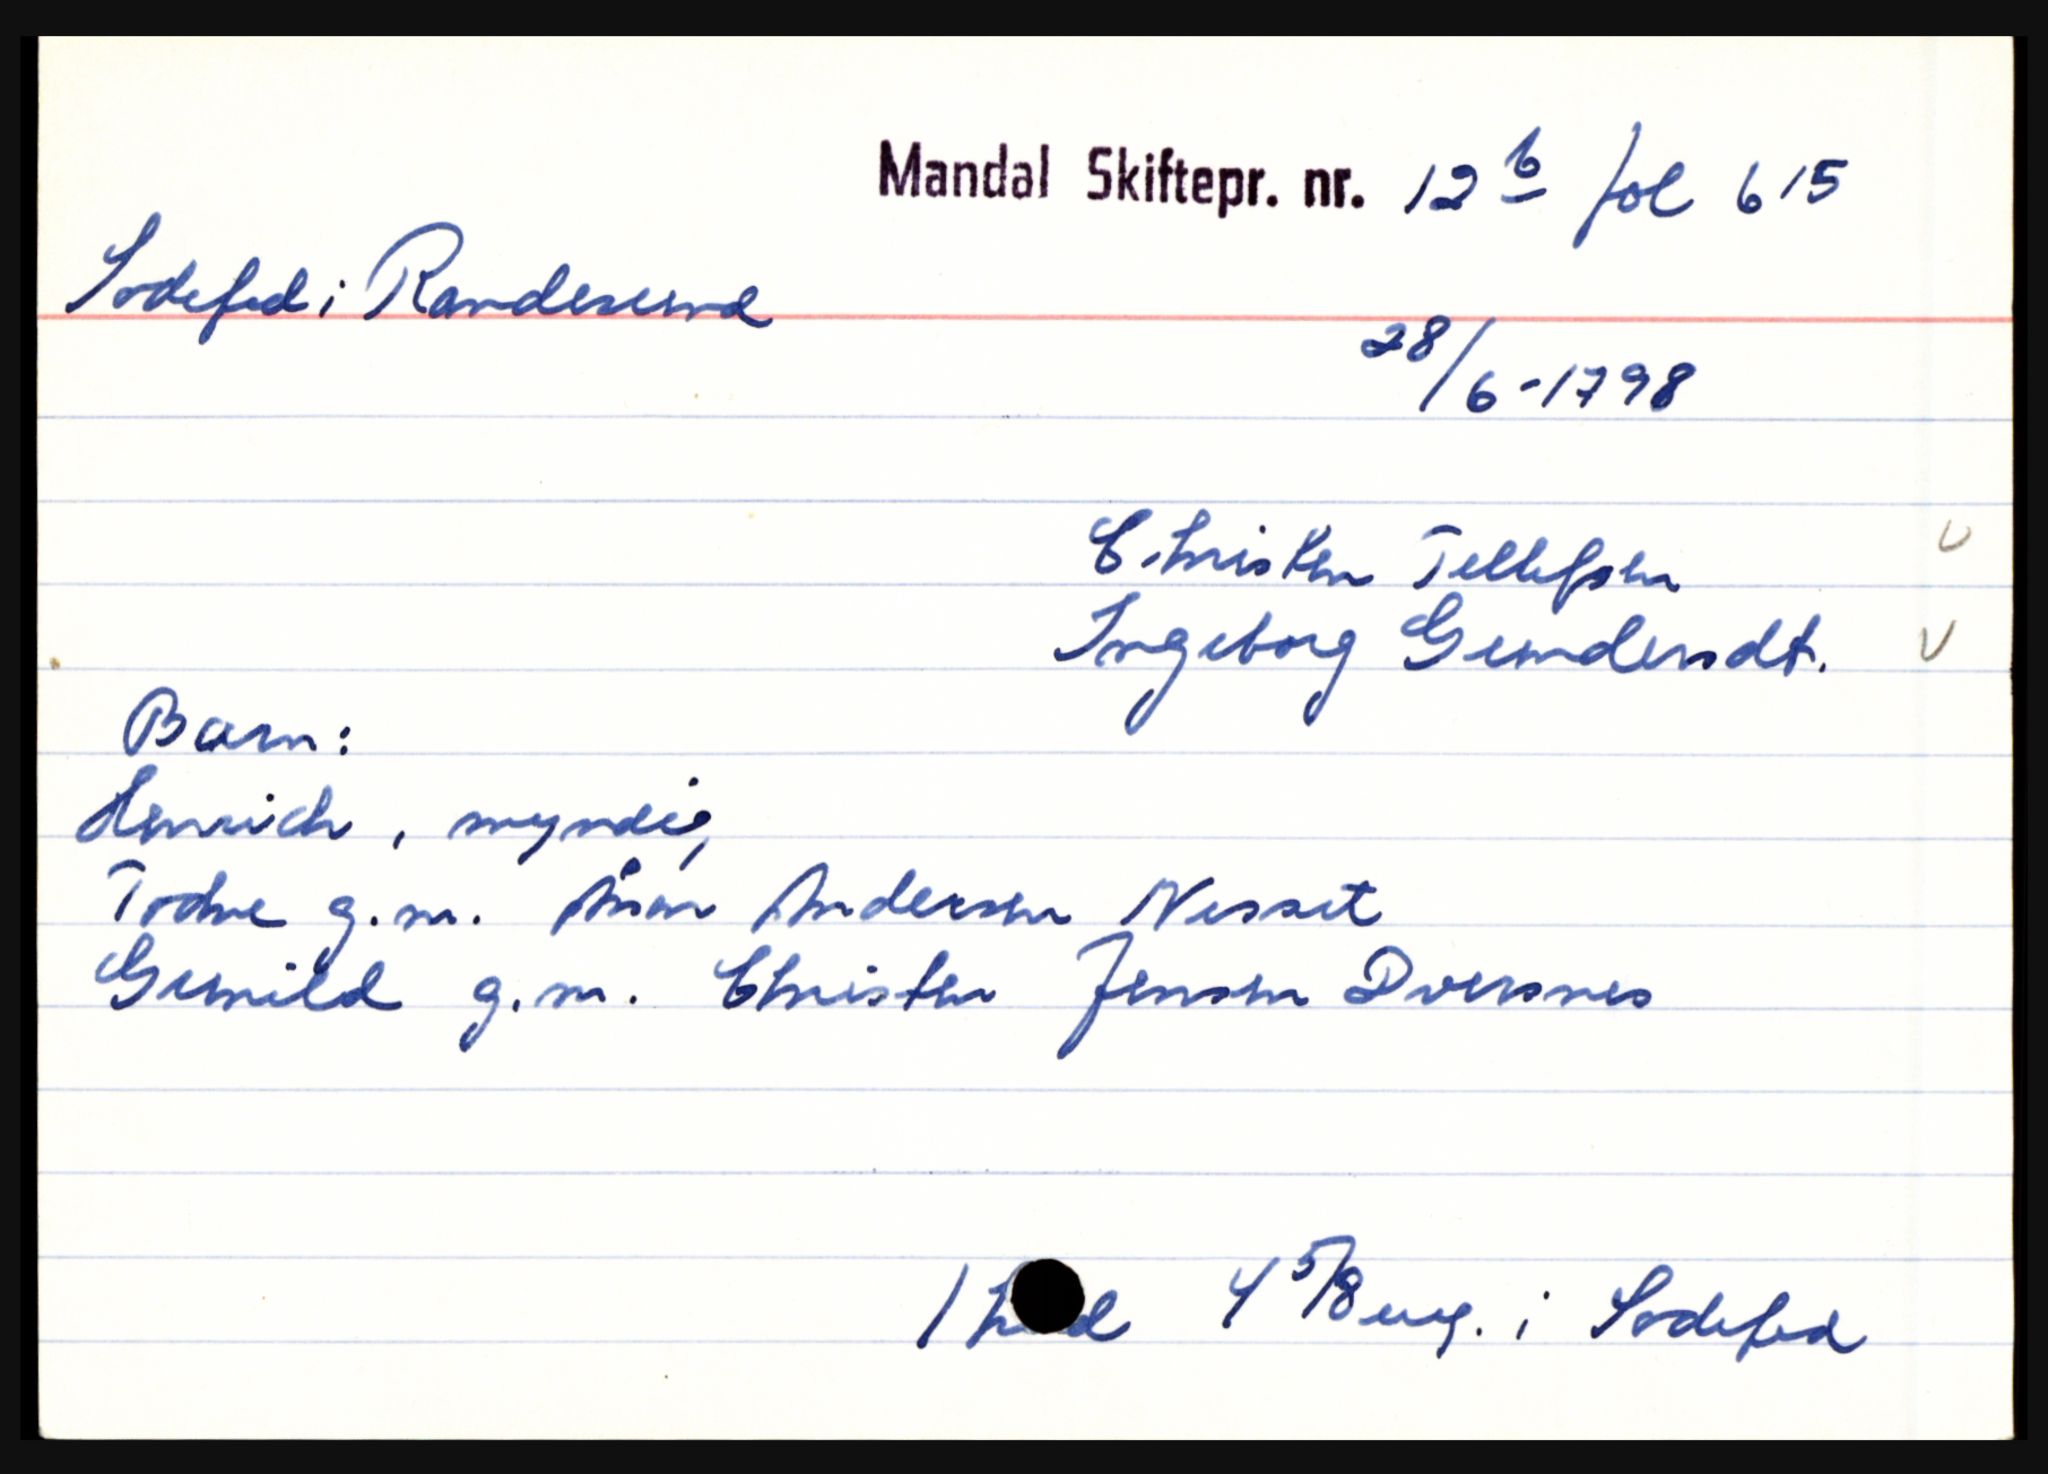 Mandal Skiftepr. nr. 12 b fol 615
Sodefed i Randesund
28/6-1798
Christen Tellefsen V
Ingeborg Gundersdt. V
Barn:
Henrich, myndig
Todne g.m. Anon Andersen Nesset
Gunild g.m. Christen Jensen Dversnes
1 hud 4 5/8 eng. i Sodefed